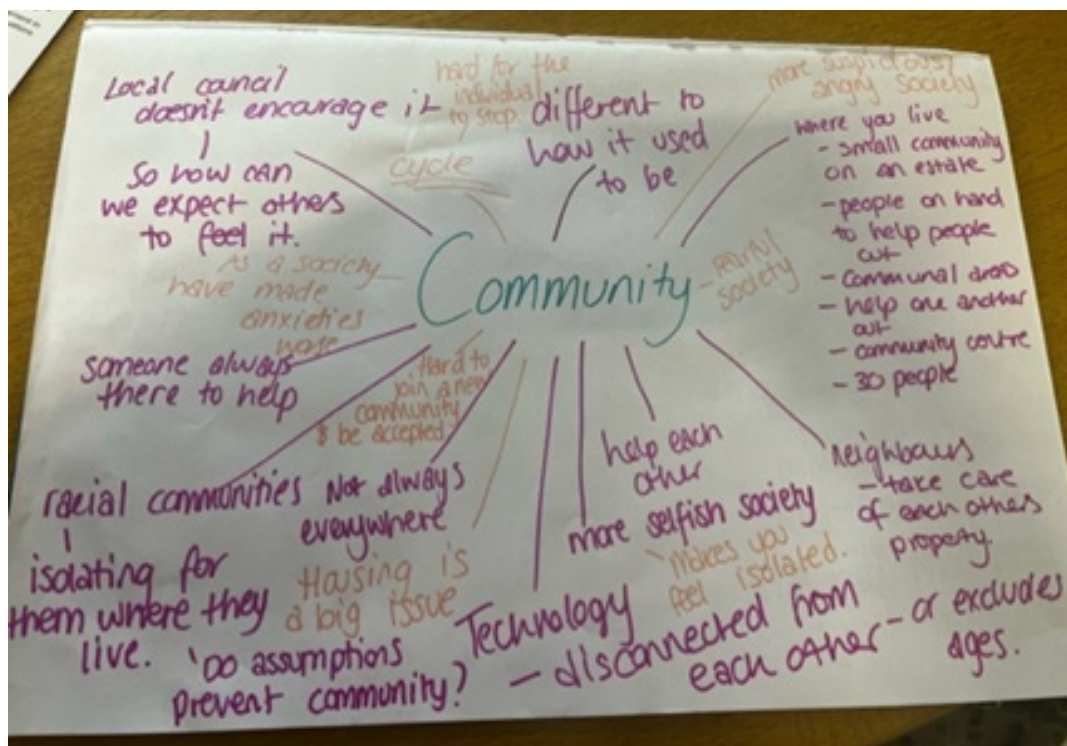 Local council
doesn't encourage it
So how can
we expect others
to feel it.
hard for the
individual
to stop
cycle
different to
how it used
to be
more suspicious/
angry society
where you live
- small community
on an estate
- people on hand
to help people
out
- communal areas
- help one another
out
- community centre
- 30 people
Community
- fearful
society
As a society
have made
anxieties
worse
someone always
there to help
Hard to
join a new
community
& be accepted
racial communities
isolating for
them where they
live.
Not always
everywhere
Housing is
a big issue
'Do assumptions
prevent community?
help each
other
more selfish society
'Makes you
feel isolated.
Neighbours
- take care
of each others
property.
Technology
- disconnected from
each other
- or excludes
ages.